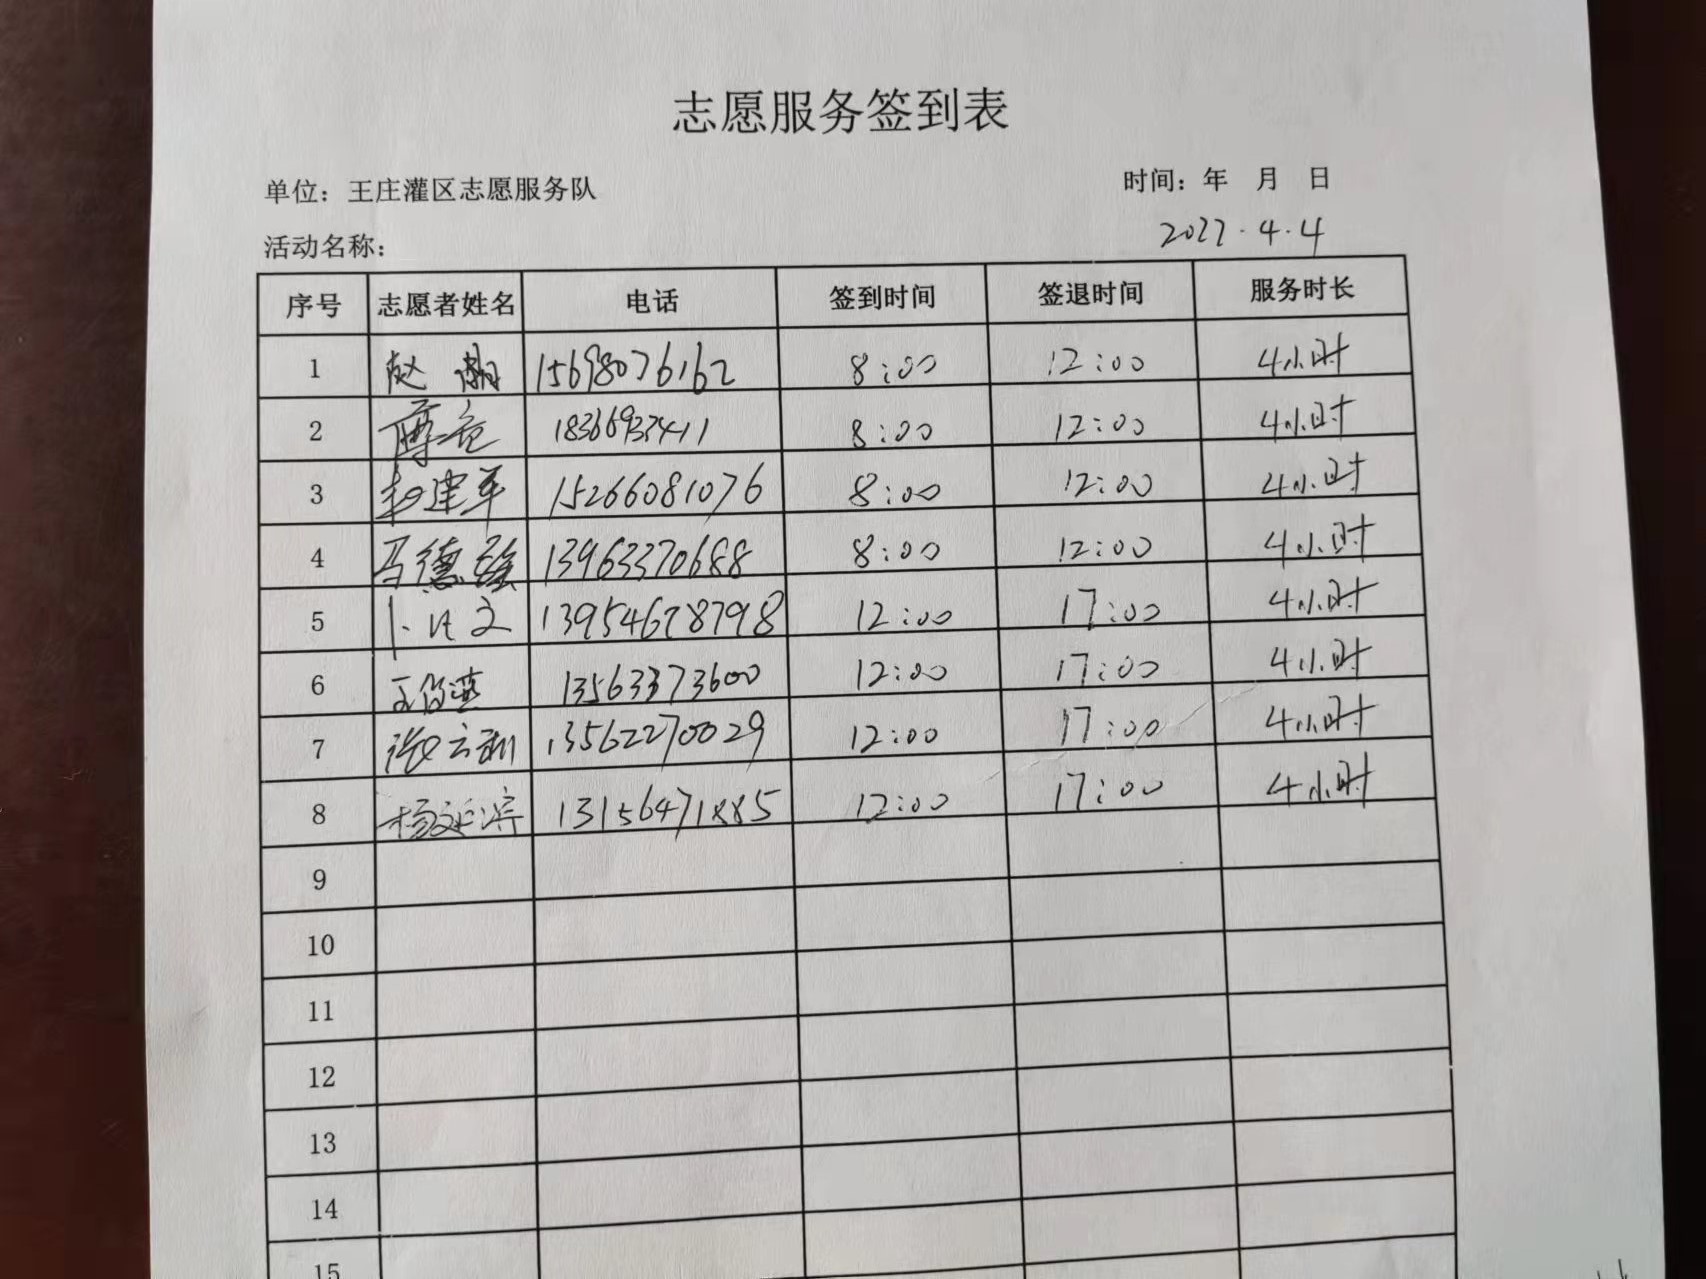 志愿服务签到表
单位：王庄灌区志愿服务队 时间：年 月 日
2022.4.4
活动名称：
序号 志愿者姓名 电话 签到时间 签退时间 服务时长
1 赵 15698076162 8:00 12:00 4小时
2 18366937411 8:00 12:00 4小时
3 赵建军 15266081076 8:00 12:00 4小时
4 马德 13963370688 8:00 12:00 4小时
5 13954678798 12:00 17:00 4小时
6 13563373600 12:00 17:00 4小时
7 13562270029 12:00 17:00 4小时
8 13156471885 12:00 17:00 4小时
9
10
11
12
13
14
15